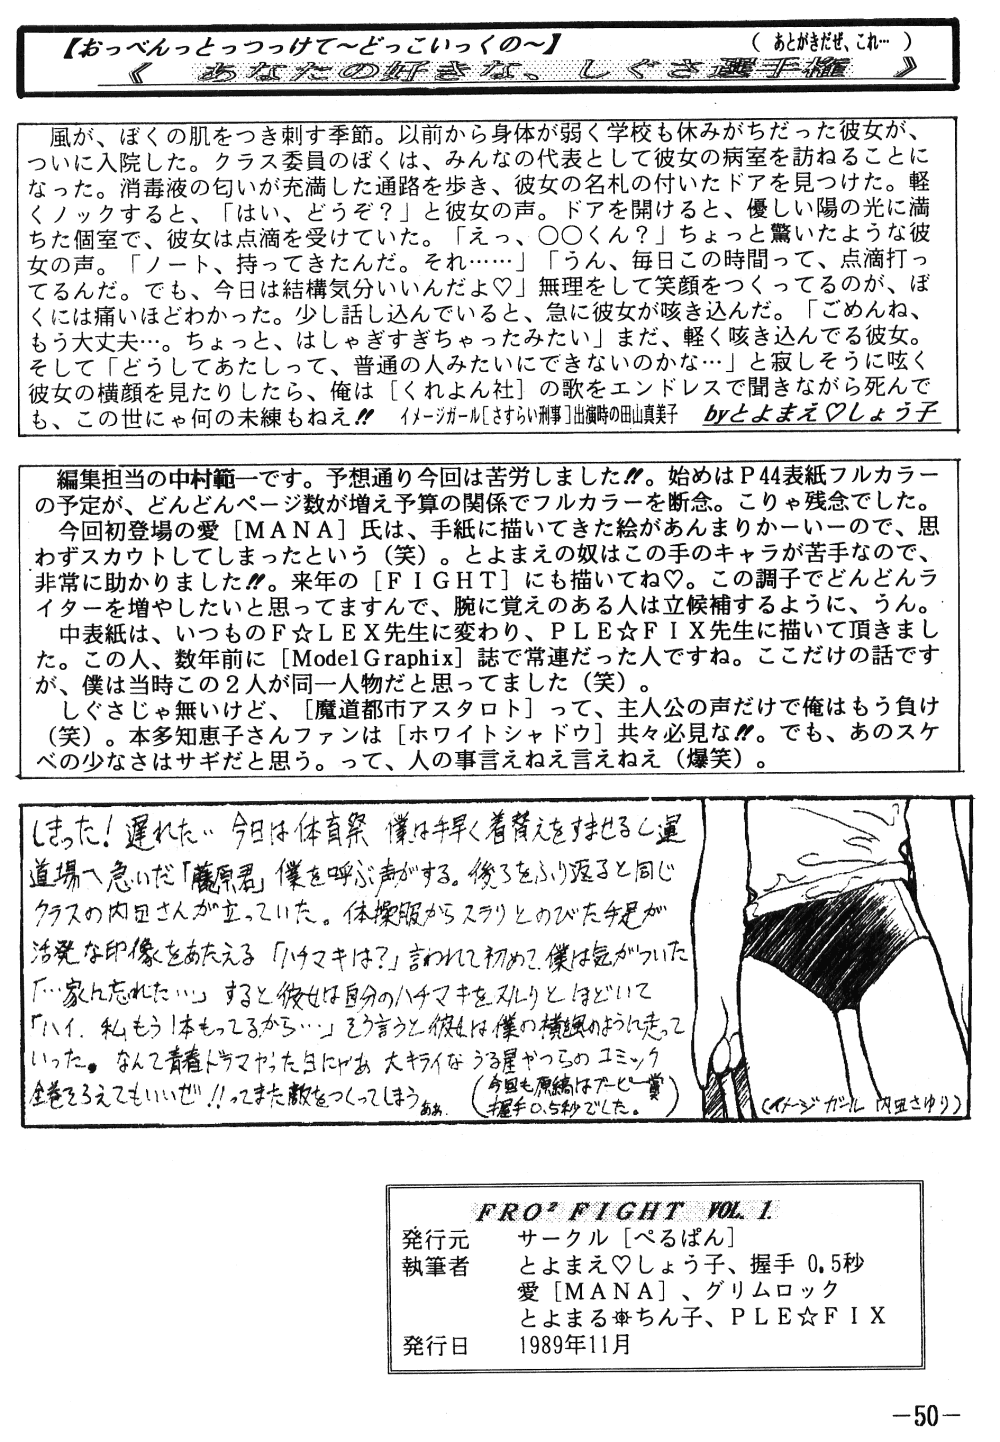 【おっぺんっとっつっけて〜どっこいっくの〜】
( あとがきだぜ、これ… )
《 あなたの好きな、しぐさ選手権 》
風が、ぼくの肌をつき刺す季節。以前から身体が弱く学校も休みがちだった彼女が、
ついに入院した。クラス委員のぼくは、みんなの代表として彼女の病室を訪ねることに
なった。消毒液の匂いが充満した通路を歩き、彼女の名札の付いたドアを見つけた。軽
くノックすると、「はい、どうぞ？」と彼女の声。ドアを開けると、優しい陽の光に満
ちた個室で、彼女は点滴を受けていた。「えっ、○○くん？」ちょっと驚いたような彼
女の声。「ノート、持ってきたんだ。それ……」「うん、毎日この時間って、点滴打っ
てるんだ。でも、今日は結構気分いいんだよ♡」無理をして笑顔をつくってるのが、ぼ
くには痛いほどわかった。少し話し込んでいると、急に彼女が咳き込んだ。「ごめんね、
もう大丈夫…。ちょっと、はしゃぎすぎちゃったみたい」まだ、軽く咳き込んでる彼女。
そして「どうしてあたしって、普通の人みたいにできないのかな…」と寂しそうに呟く
彼女の横顔を見たりしたら、俺は［くれよん社］の歌をエンドレスで聞きながら死んで
も、この世にゃ何の未練もねえ!! イメージガール［さすらい刑事］出演時の田山真美子 byとよまえ♡しょう子
編集担当の中村範一です。予想通り今回は苦労しました!!。始めはＰ44表紙フルカラー
の予定が、どんどんページ数が増え予算の関係でフルカラーを断念。こりゃ残念でした。
今回初登場の愛［ＭＡＮＡ］氏は、手紙に描いてきた絵があんまりかーいーので、思
わずスカウトしてしまったという（笑）。とよまえの奴はこの手のキャラが苦手なので、
非常に助かりました!!。来年の［ＦＩＧＨＴ］にも描いてね♡。この調子でどんどんラ
イターを増やしたいと思ってますんで、腕に覚えのある人は立候補するように、うん。
中表紙は、いつものＦ☆ＬＥＸ先生に変わり、ＰＬＥ☆ＦＩＸ先生に描いて頂きまし
た。この人、数年前に［ModelGraphix］誌で常連だった人ですね。ここだけの話です
が、僕は当時この２人が同一人物だと思ってました（笑）。
しぐさじゃ無いけど、［魔道都市アスタロト］って、主人公の声だけで俺はもう負け
（笑）。本多知恵子さんファンは［ホワイトシャドウ］共々必見な!!。でも、あのスケ
ベの少なさはサギだと思う。って、人の事言えねえ言えねえ（爆笑）。
しまった！遅れた… 今日は体育祭 僕は手早く着替えをすませると運
道場へ急いだ「藤原君」僕を呼ぶ声がする。後ろをふり返ると同じ
クラスの内田さんが立っていた。体操服からスラリとのびた手足が
活発な印像をあたえる「ハチマキは？」言われて初めて僕は気がついた
「…家に忘れた…」すると彼女は自分のハチマキをスルリとほどいて
「ハイ．私もう1本もってるから…」そう言うと彼女は僕の横を風のように走って
いった。なんて青春ドラマやった日にゃあ 大キライなうる星やつらのコミック
全巻そろえてもいいぜ!!ってまた敵をつくってしまう ああ．
(今回も原稿はブービー賞
握手0.5秒でした。)
(イメージガール 内田さゆり)
FRO² FIGHT VOL. 1.
発行元 サークル［ぺるぱん］
執筆者 とよまえ♡しょう子、握手 0.5秒
愛［ＭＡＮＡ］、グリムロック
とよまる ちん子、ＰＬＥ☆ＦＩＸ
発行日 1989年11月
—50—